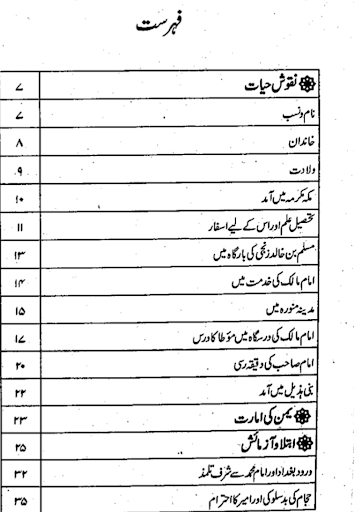 فہرست
نقوش حیات ۷
نام ونسب ۷
خاندان ۸
ولادت ۹
مکہ مکرمہ میں آمد ۱۰
تحصیل علم اور اس کے لیے اسفار ۱۱
مسلم بن خالد زنجی کی بارگاہ میں ۱۳
امام مالک کی خدمت میں ۱۴
مدینہ منورہ میں ۱۵
امام مالک کی درسگاہ میں مؤطا کا درس ۱۷
امام صاحب کی دقیقہ رسی ۲۰
بنی ہذیل میں آمد ۲۲
یمن کی امارت ۲۳
ابتلا و آزمائش ۲۵
ورود بغداد اور امام محمد سے شرف تلمذ ۳۲
حجام کی بدسلوکی اور امیر کا احترام ۳۵